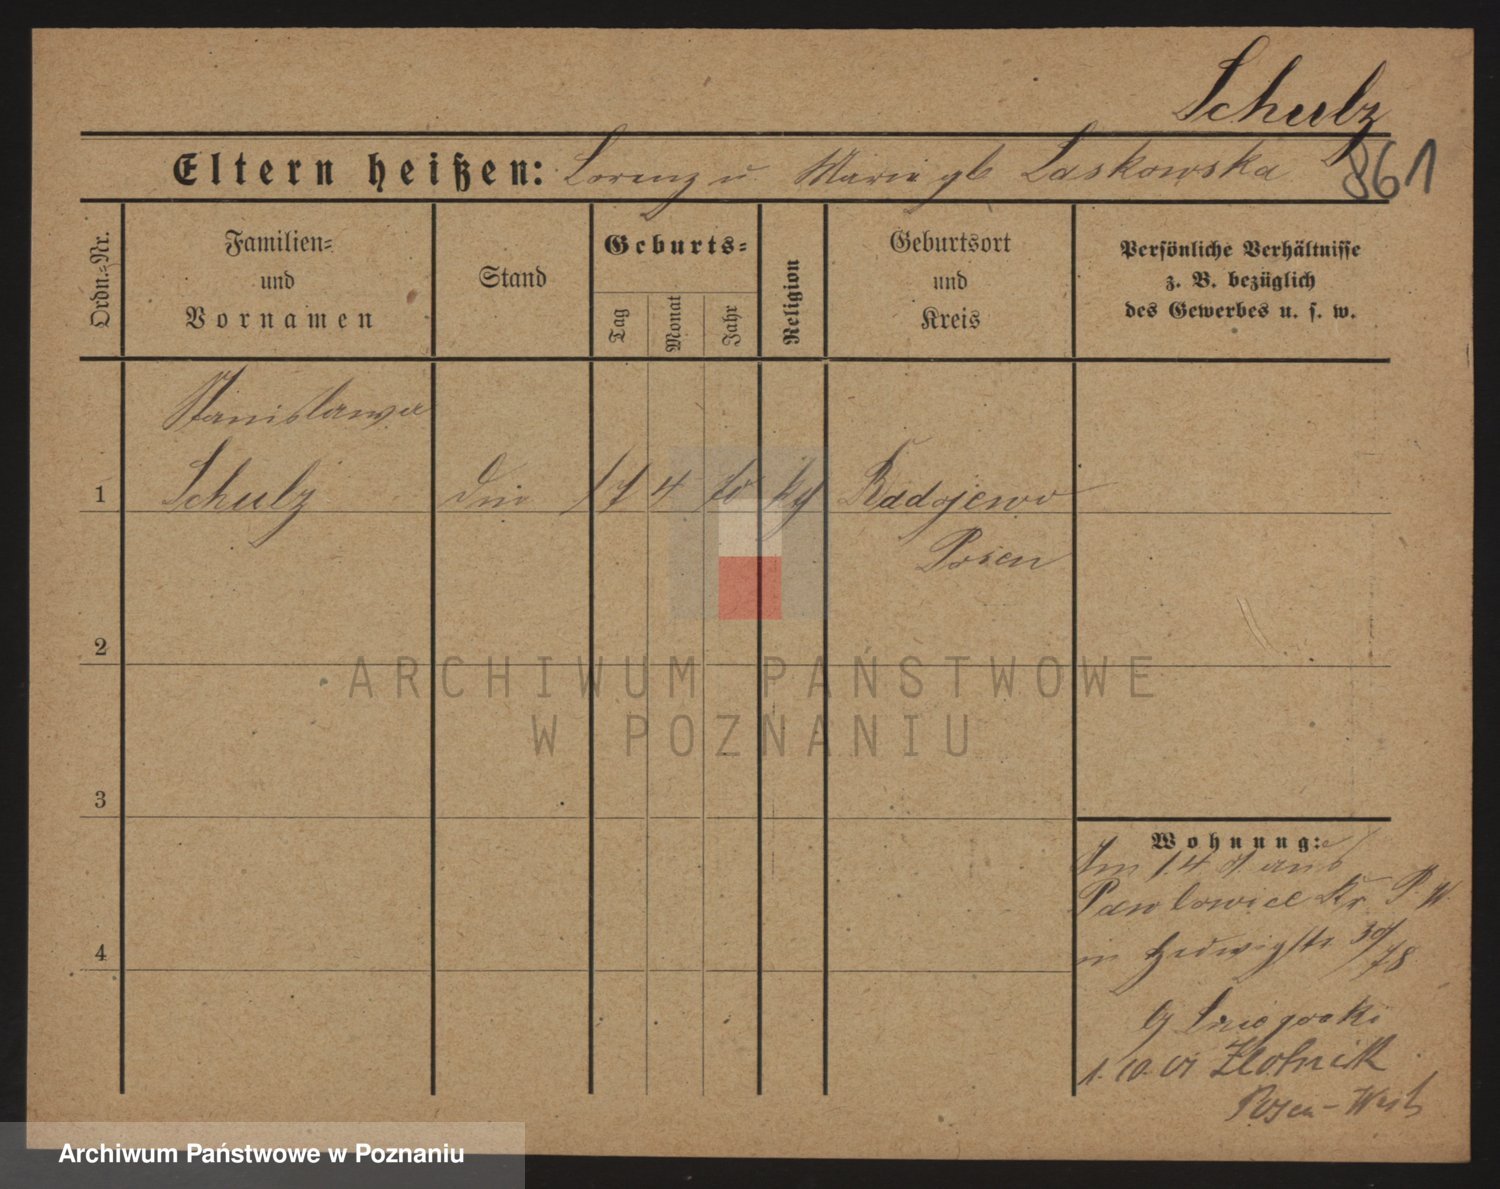 Schulz
861
Eltern heißen: Lorenz u. Marie gb Laskowska
Ordn.=Nr.
Familien=
und
Vornamen
Stand
Geburts=
Tag
Monat
Jahr
Religion
Geburtsort
und
Kreis
Persönliche Verhältnisse
z. B. bezüglich
des Gewerbes u. s. w.
Stanislawa
1 Schulz 17 4 Radojewo
Posen
2
3
4
Wohnung:
1.4 aus
Pawlowice Kr. P. W.
in Hedwigstr. 30/78
1.10.01 Zlotnik
Posen-West
ARCHIWUM PAŃSTWOWE
W POZNANIU
Archiwum Państwowe w Poznaniu